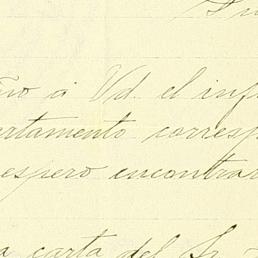 ño á Vd. el inf
rtamento corresp
espero encontrar
a carta del Sr.